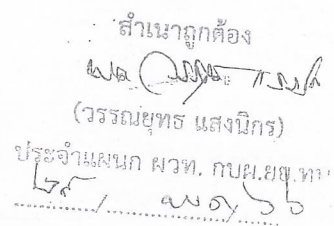 สำเนาถูกต้อง
(วรรณยุทธ แสงนิกร)
ประจำแผนก ผวท. กบผ.ผย.ทา
๒๙ / พ.ย. / ๖๖